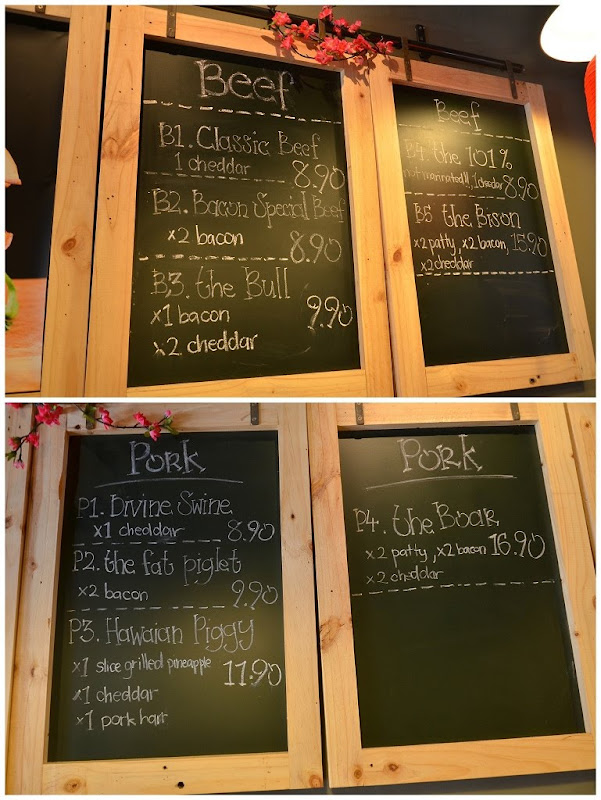 Beef
B1. Classic Beef
1 cheddar 8.90
B2. Bacon Special Beef
x2 bacon 8.90
B3. the Bull
x1 bacon 9.90
x2 cheddar
Beef
B4. the 101%
1 chedar 8.90
B5 the Bison
x2 patty, x2 bacon, 15.90
x2 cheddar
Pork
P1. Divine Swine
x1 cheddar 8.90
P2. the fat piglet
x2 bacon 9.90
P3. Hawaian Piggy
x1 slice grilled pineapple 11.90
x1 cheddar
x1 pork ham
Pork
P4. the Boar
x2 patty, x2 bacon 16.90
x2 cheddar